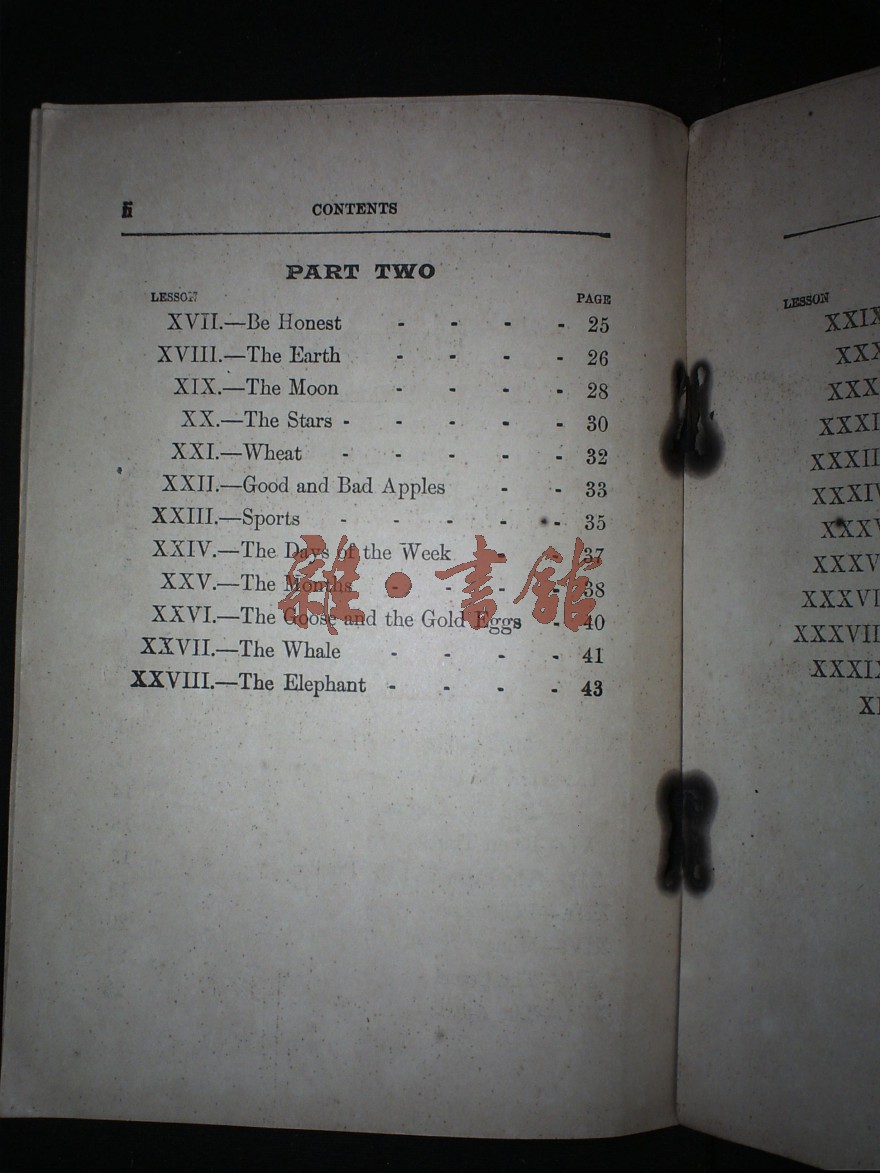 ii CONTENTS
PART TWO
LESSON PAGE
XVII.—Be Honest - - - - 25
XVIII.—The Earth - - - - 26
XIX.—The Moon - - - - 28
XX.—The Stars - - - - - 30
XXI.—Wheat - - - - - 32
XXII.—Good and Bad Apples - - 33
XXIII.—Sports - - - - - 35
XXIV.—The Days of the Week - - 37
XXV.—The Months - - - - 38
XXVI.—The Goose and the Gold Eggs - 40
XXVII.—The Whale - - - - 41
XXVIII.—The Elephant - - - - 43
雜·書館
LESSON